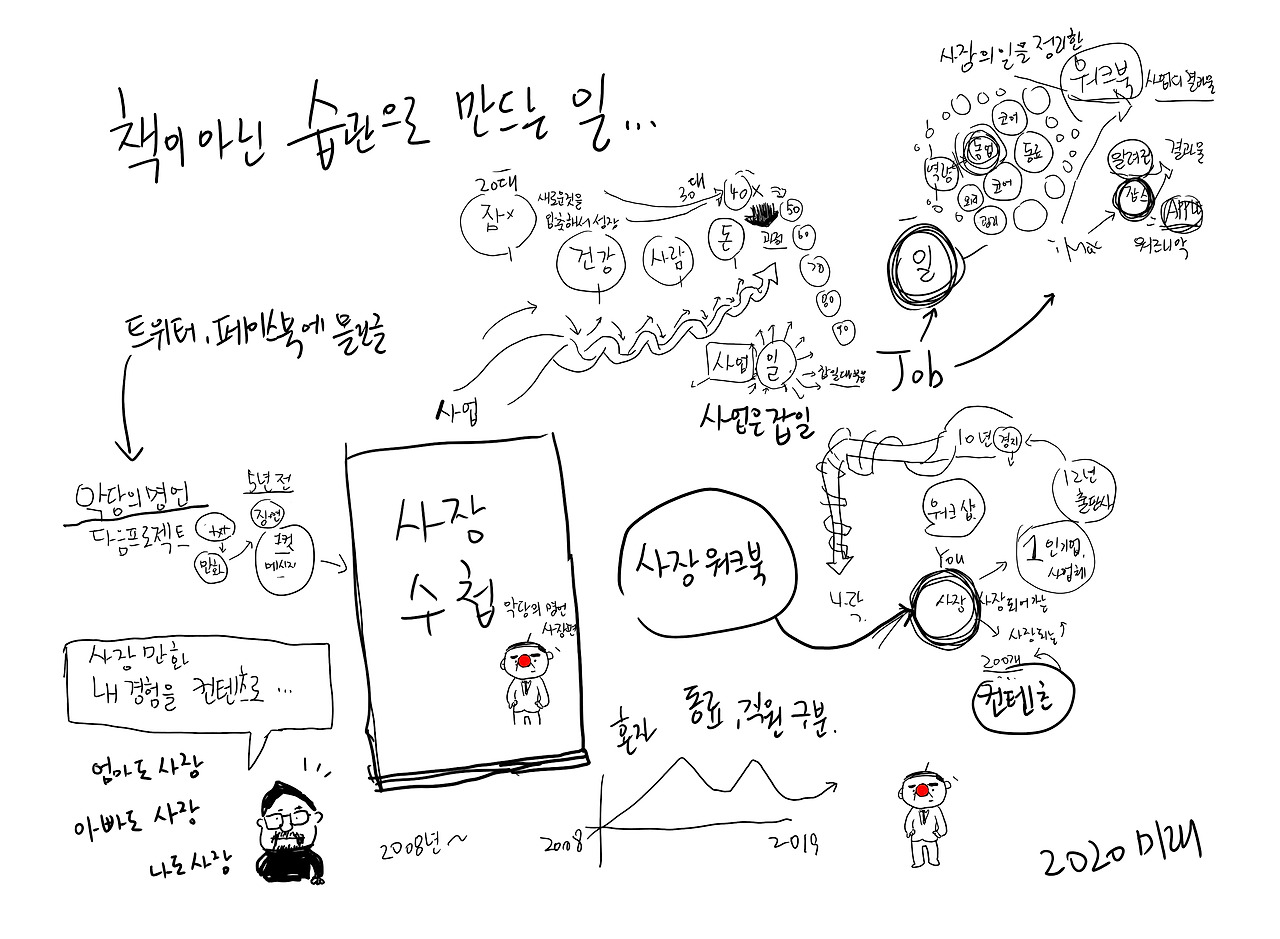 책이 아닌 습관으로 만드는 일...
사장의 일을 정리한
워크북
사업의 결과물
코어
동업
동료
역량
코어
외주
알려진
결과물
잡스
Apple
iMac
워즈니악
일
Job
20대
잡×
새로운것을
입출해서 성장
30대
40×
50
60
70
80
90
건강
사람
돈
사업
사업
일
사업은 잡일
트위터, 페이스북에 올린글
악당의 명언
다음프로젝트
txt
만화
5년 전
포켓
메시지
사장
수첩
악당의 명언
사장편
사장 만화
내 경험을 컨텐츠로 ...
엄마도 사장
아빠도 사장
나도 사장
2008년~
사장 워크북
10년
경지
12년
출판사
워크샵
시각
You
사장
1인기업,
사업체
사장되어가는
사장되는
200개
컨텐츠
혼자
동료, 직원 구분.
2008
2019
2020 미래